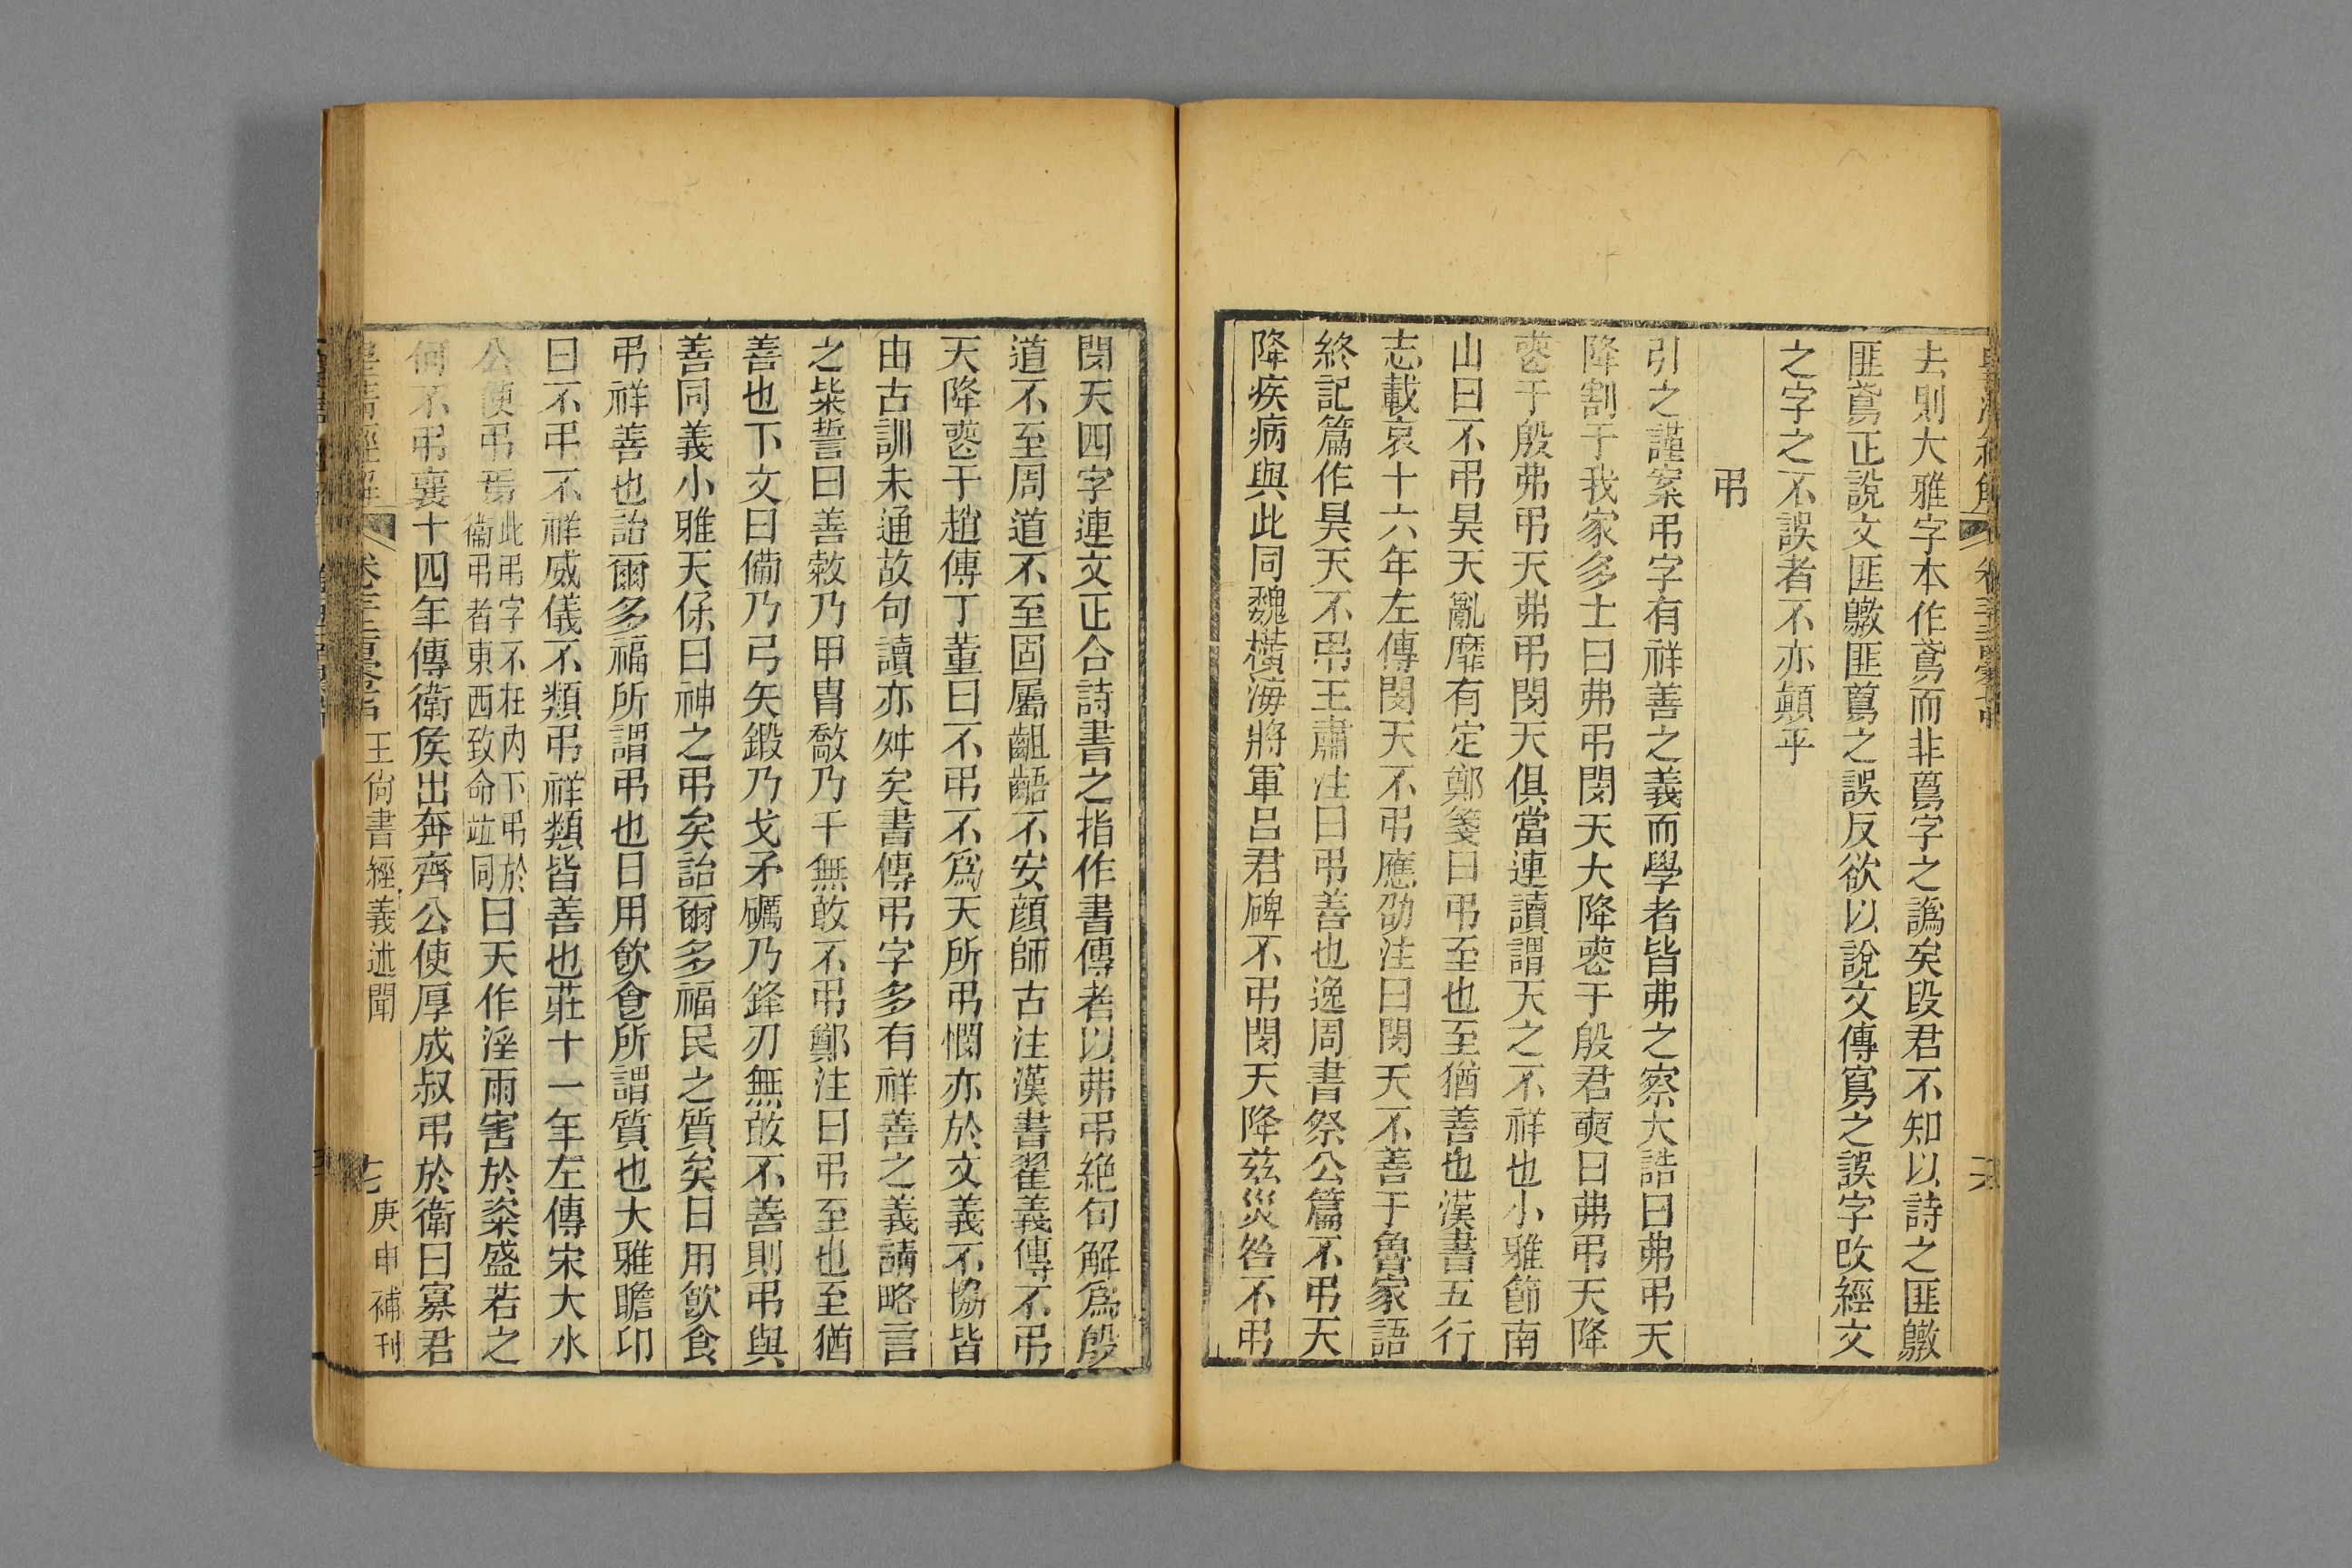 去則大雅字本作鳶而非蔦字之譌矣段君不知以詩之匪鷻
匪鳶正說文匪鷻匪蔦之誤反欲以說文傳寫之誤字改經文
之字之不誤者不亦顛乎
弔
引之謹案弔字有祥善之義而學者皆弗之察大誥曰弗弔天
降割于我家多士曰弗弔閔天大降䘮于殷君奭曰弗弔天降
䘮于殷弗弔天弗弔閔天俱當連讀謂天之不祥也小雅節南
山曰不弔昊天亂靡有定鄭箋曰弔至也至猶善也漢書五行
志載哀十六年左傳閔天不弔應劭注曰閔天不善于魯家語
終記篇作昊天不弔王肅注曰弔善也逸周書祭公篇不弔天
降疾病與此同魏橫海將軍呂君碑不弔閔天降茲災咎不弔
閔天四字連文正合詩書之指作書傳者以弗弔絶句解爲殷
道不至周道不至固屬齟齬不安顔師古注漢書翟義傳不弔
天降䘮于趙傳丁董曰不弔不爲天所弔憫亦於文義不協皆
由古訓未通故句讀亦舛矣書傳弔字多有祥善之義請略言
之柴誓曰善敹乃甲冑敿乃干無敢不弔鄭注曰弔至也至猶
善也下文曰備乃弓矢鍛乃戈矛礪乃鋒刃無敢不善則弔與
善同義小雅天保曰神之弔矣詒爾多福民之質矣日用飮食
弔祥善也詒爾多福所謂弔也日用飮食所謂質也大雅瞻卬
曰不弔不祥威儀不類弔祥類皆善也莊十一年左傳宋大水
公使弔焉此弔字不在内下弔於衞弔者東西致命竝同曰天作淫雨害於粢盛若之
何不弔襄十四年傳衛矦出奔齊公使厚成叔弔於衛曰寡君
皇淸經解 卷千二百零七 王尙書經義述聞 七 庚申補刊